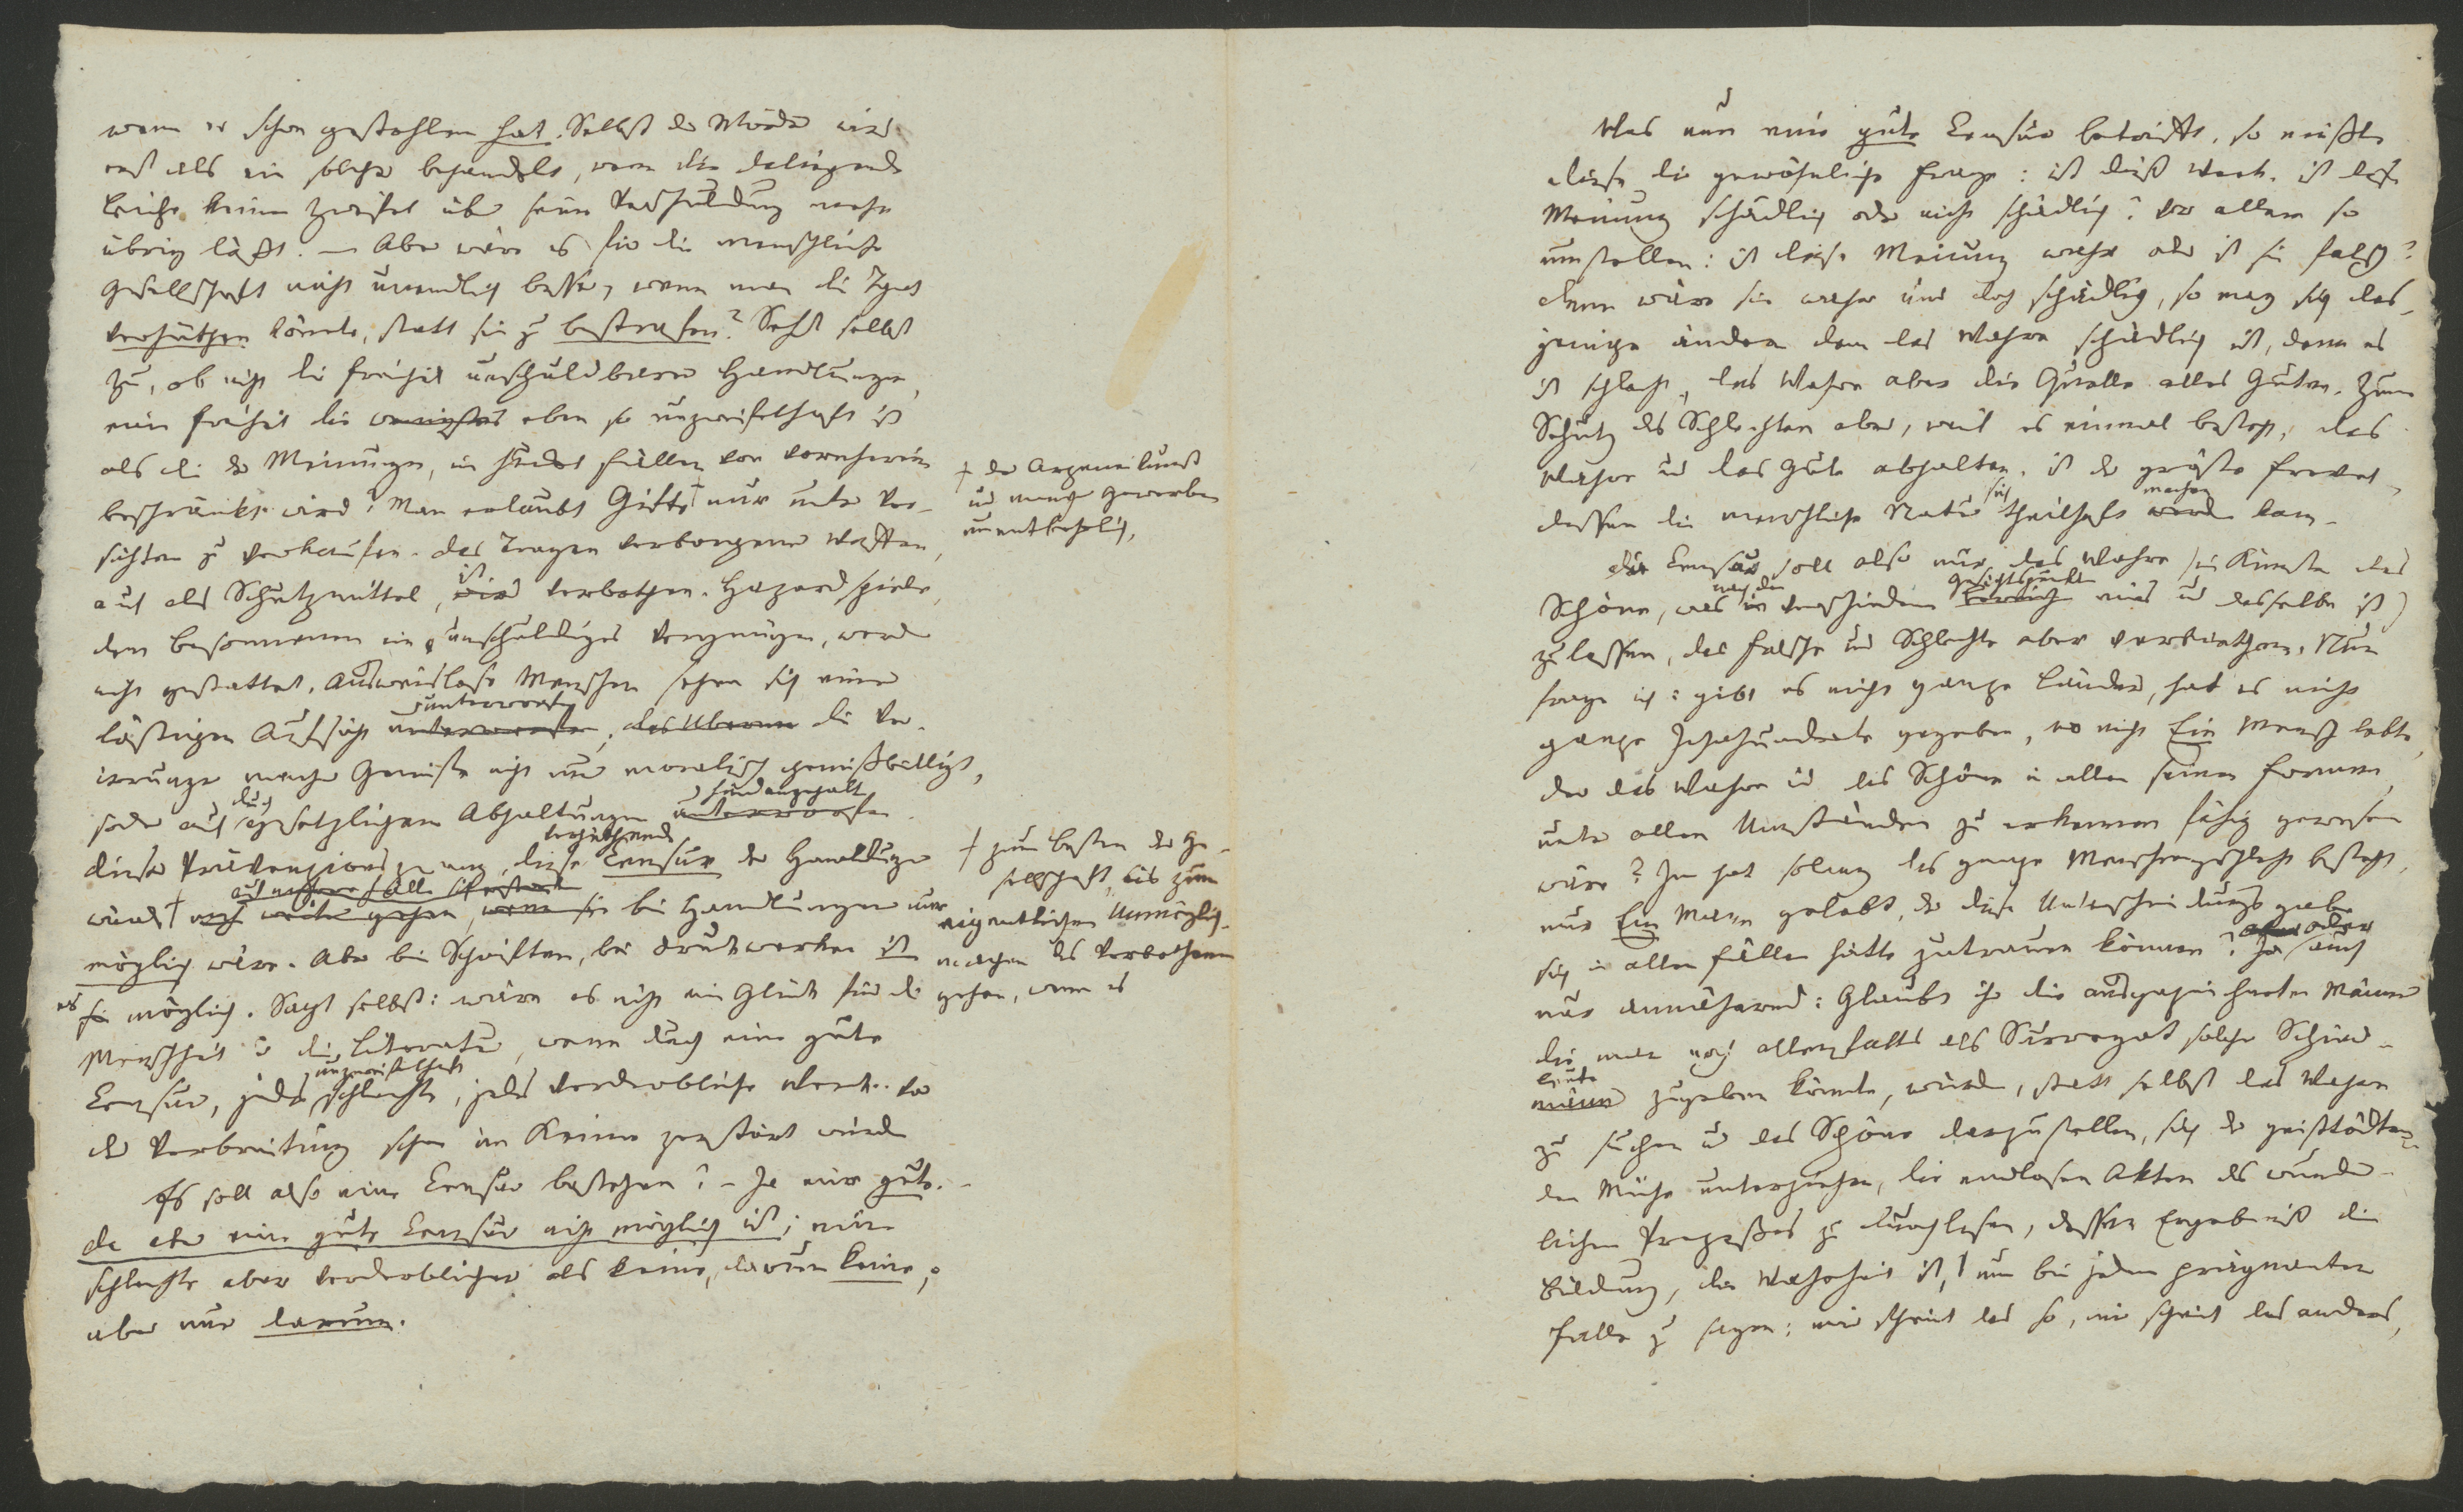 wenn er schon gestohlen hat. Selbst der Mörder wird
erst als ein solcher behandelt, wenn die daliegende
Leiche keinen Zweifel über seine Verschuldung mehr
übrig läßt. – Aber wäre es für die menschliche
Gesellschaft nicht unendlich besser, wenn man die That
verhüthen könnte, statt sie zu bestrafen? Seht selbst
zu, ob nicht die Freiheit unschuldbarer Handlungen,
eine Freiheit die wenigstens eben so unzweifelhaft ist
als die der Meinungen, in hundert Fällen von vorneherein
beschränkt wird? Man erlaubt Gifte † nur unter Vor-
sichten zu verkaufen. das Tragen verborgener Waffen,
auch als Schutzmittel, wird ist verbothen. Hazardspiele,
dem Besonnenen ein unschuldiges Vergnügen, werden
nicht gestattet. Ausweislose Menschen sehen sich einer
lästigen Aufsicht unterworfen unterworfen, das Übermaß die Ver-
irrungen mancher Genüsse nicht nur moralisch gemißbilligt,
sondern auch durch gesetzlichen Abhaltungen unterworfen hindangehalt
dieser Präventionszwang, diese verhüthende Censur der Handlungen
würde † noch weiter gehen, wenn sie bei Handlungen nur
möglich wäre. Aber bei Schriften, bei Druckwerken ist
es sie möglich. Sagt selbst: wäre es nicht ein Glück für die
Menschheit u die Literatur, wenn durch eine gute
Censur, jedes unzweifelhaft schlechte, jedes verderbliche Werk vor
der Verbreitung schon im Keime zerstört würde
Es soll also eine Censur bestehen? – Ja eine gute. –
da aber eine gute Censur nicht möglich ist; eine
schlechte aber verderblicher als keine, darum keine;
aber nur darum.
† der Arzeneikunst
und mancher Gewerben
unentbehrlich,
† zum Besten der Ge-
sellschaft, bis zum
eigentlichen Unmöglich-
machen des Verbothenen
gehen, wenn es
Was nun eine gute Censur betrifft, so müßte
diese die gewöhnliche Frage: ist dieß Werk, ist diese
Meinung schädlich oder nicht schädlich? vor allem so
umstellen: ist diese Meinung wahr oder ist sie falsch?
denn wäre sie wahr und doch schädlich, so mag sich das-
jenige ändern dem das Wahre schädlich ist, denn es
ist schlecht, das Wahre aber die Quelle alles Guten. Zum
Schutz des Schlechten aber, weil es einmal besteht, das
Wahre und das Gute abhalten, ist der größte Frevel,
dessen die menschliche Natur sich theilhaft werden machen kann.
die Censur soll also nur das Wahre (in Künsten das
Schöne, was in nach den verschiedenen Gesichtspunkten eins und dasselbe ist)
zulassen, das Falsche und Schlechte aber verbiethen. Nun
frage ich: gibt es nicht ganze Länder, hat es nicht
ganze Jahrhunderte gegeben, wo nicht Ein Mensch lebte,
der das Wahre und das Schöne in allen seinen Formen,
unter allen Umständen zu erkennen fähig gewesen
wäre? Ja hat solang das ganze Menschengeschlecht besteht,
nur Ein Mann gelebt, der diese Unterscheidungsgabe
sich in allen Fällen hätte zutrauen können? Ja aber oder auch
nur annähernd: Glaubt ihr die ausgezeichneten Männer
die man noch allenfalls als Surrogat solcher Schied-
männer leute zugeben könnte, würden, statt selbst das Wahre
zu suchen und das Schöne darzustellen, sich der geisttödten-
den Mühe unterziehen, die endlosen Akten des wunder-
lichen Prozeßes zu durchlesen, dessen Ergebniß die
Bildung, die Wahrheit ist, um bei jedem prägnanten
Falle zu sagen: mir scheint das so, mir scheint das anders,